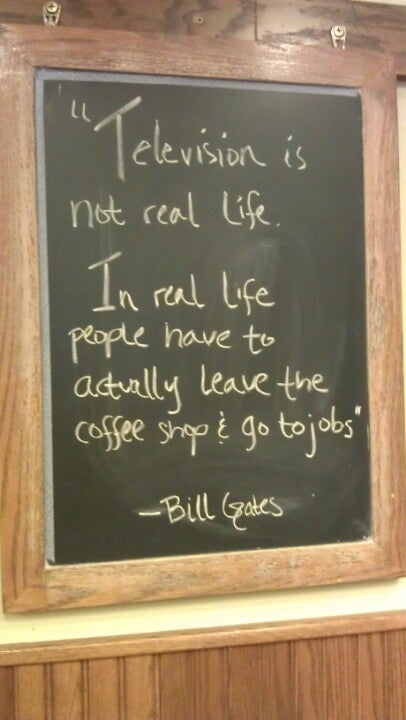 "Television is
not real life.
In real life
people have to
actually leave the
coffee shop & go to jobs"
—Bill Gates